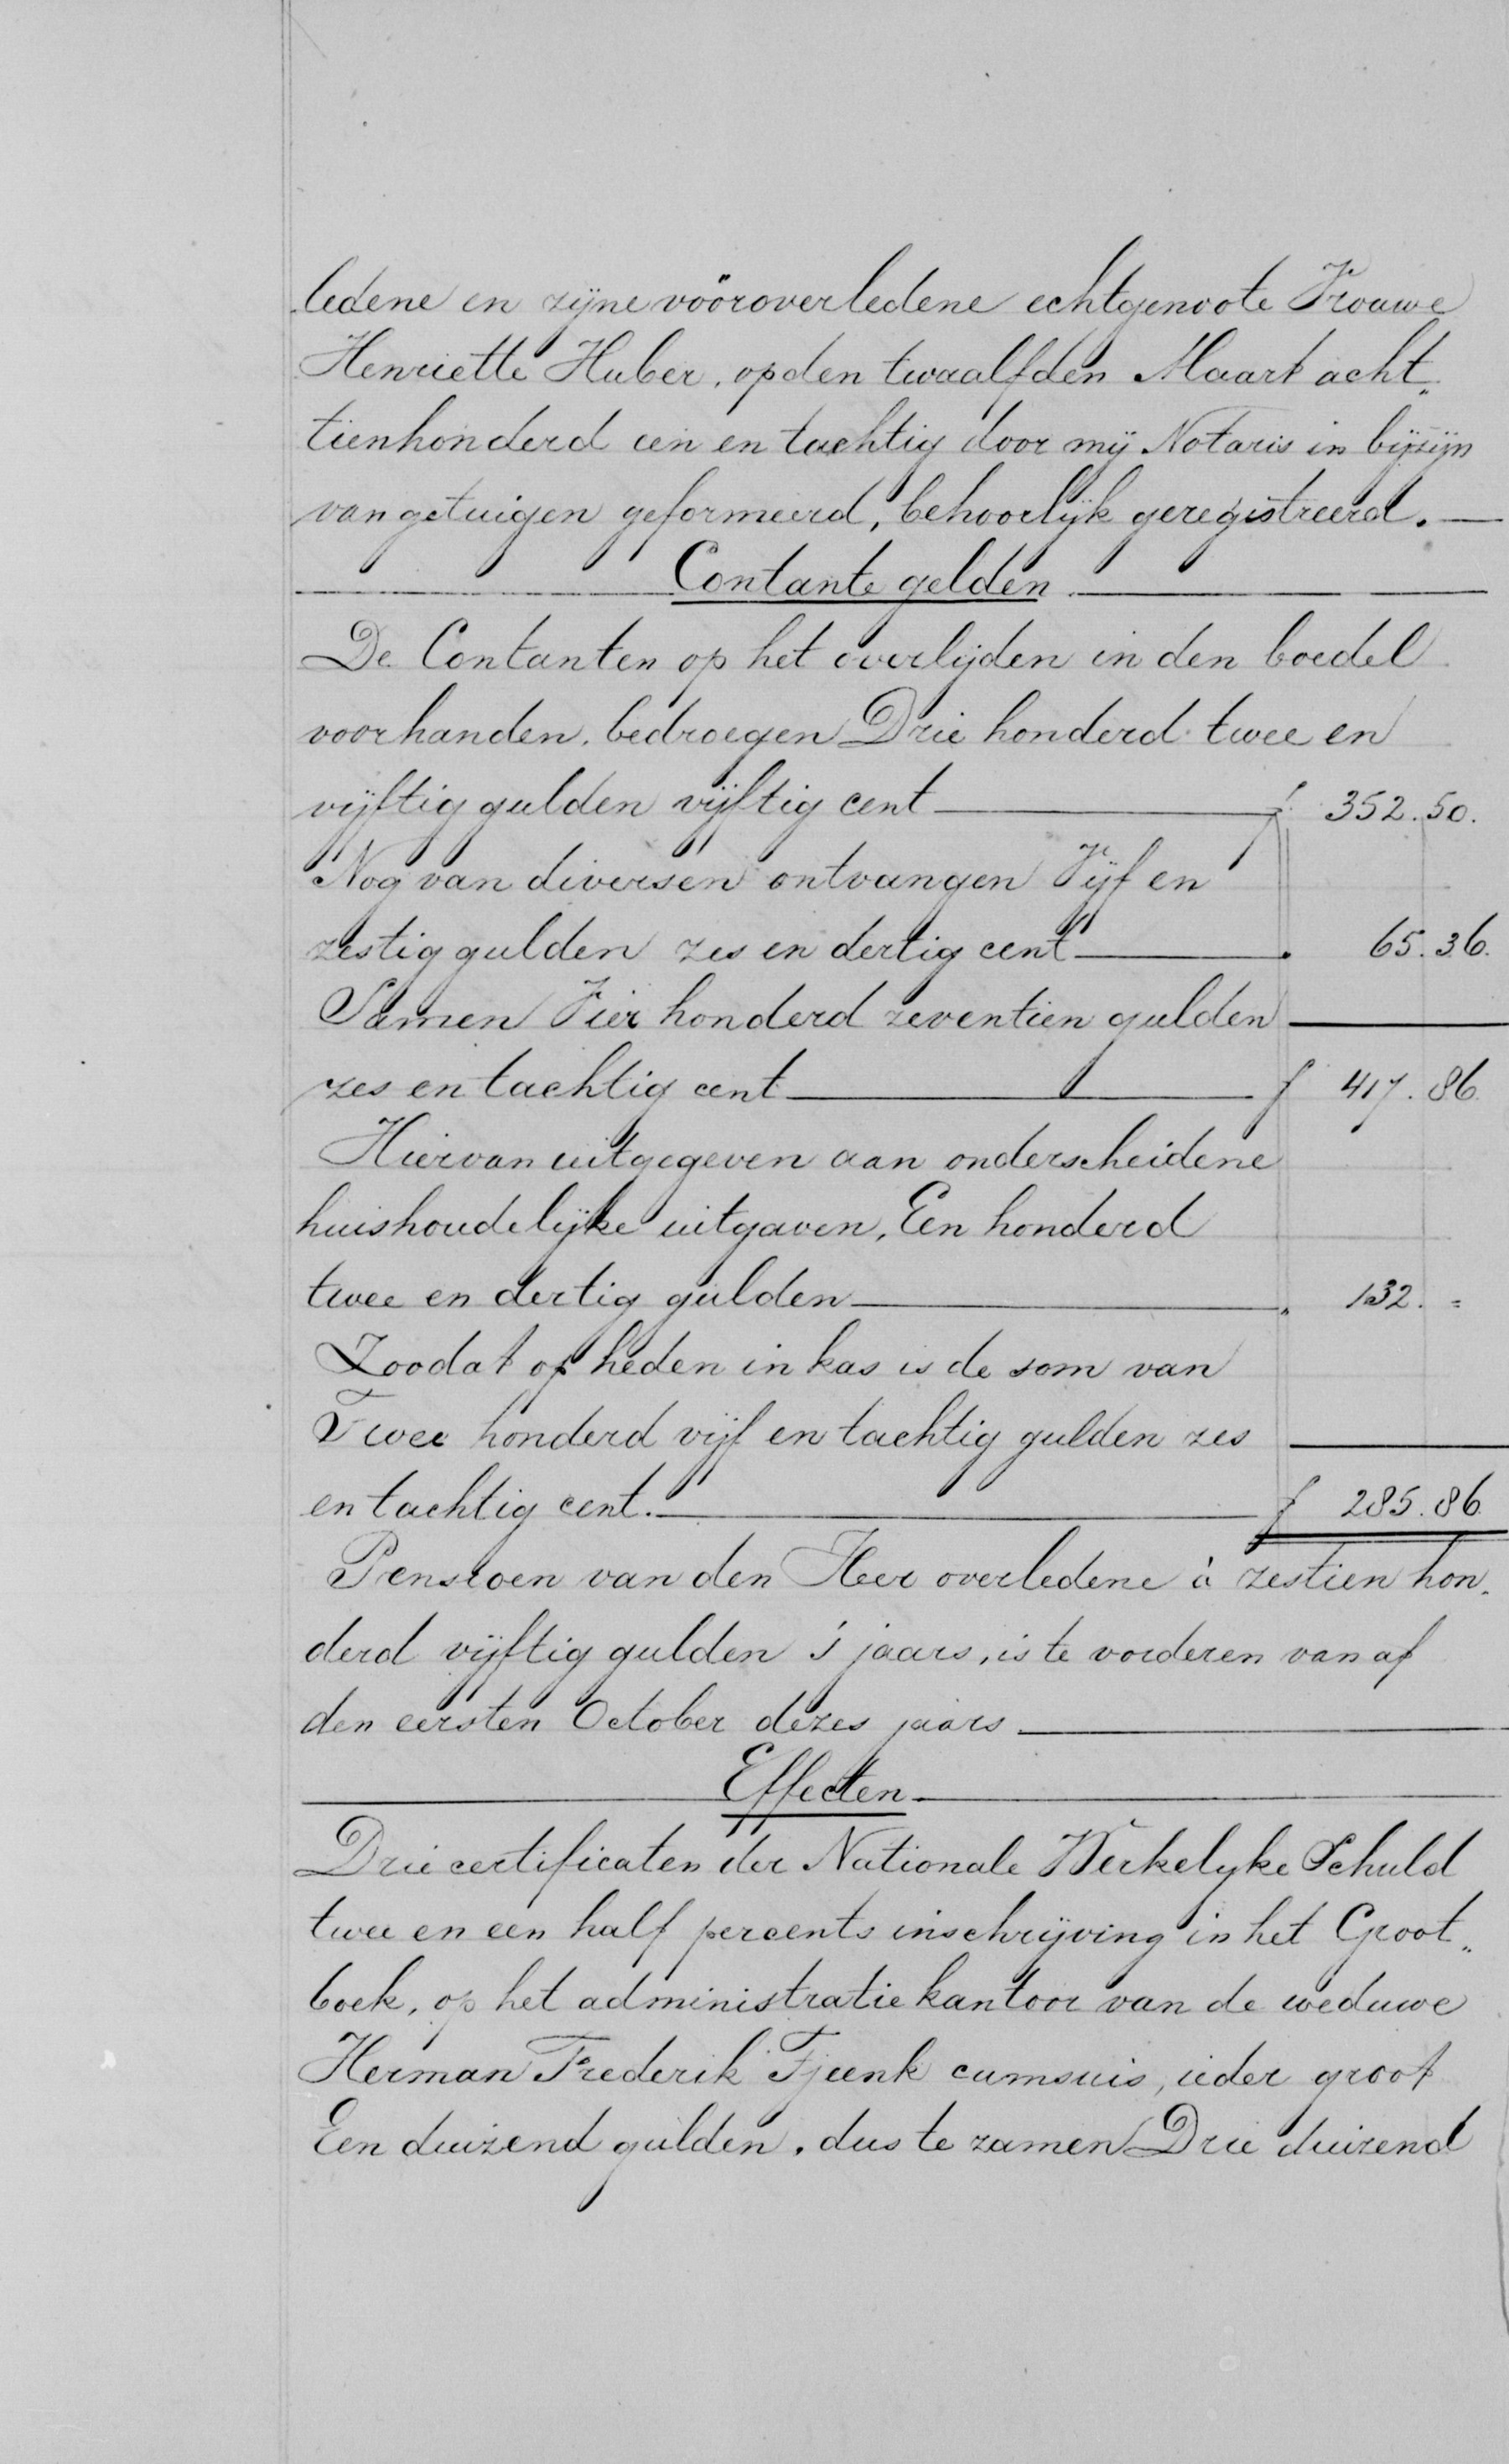 ledene en zijne vóóroverledene echtgenoote Vrouwe
Henriette Huber, op den twaalfden Maart acht„
tienhonderd een en tachtig door mij Notaris in bijzijn
van getuigen geformeerd, behoorlijk geregistreerd.
Contante gelden
De Contanten op het overlijden in den boedel
voorhanden, bedroegen Drie honderd twee en
vijftig gulden vijftig cent f 352.50.
Nog van diversen ontvangen Vijf en
zestig gulden zes en dertig cent „ 65.36.
Samen Vier honderd zeventien gulden
zes en tachtig cent f 417.86
Hiervan uitgegeven aan onderscheidene
huishoudelijke uitgaven, Een honderd
twee en dertig gulden „ 132. =
Zoodat op heden in kas is de som van
Twee honderd vijf en tachtig gulden zes
en tachtig cent. f 285.86
Pensioen van den Heer overledene à zestien hon„
derd vijftig gulden 's jaars, is te vorderen van af
den eersten October dezes jaars
Effecten
Drie certificaten der Nationale Werkelyke Schuld
twee en een half percents inschrijving in het Groot„
boek, op het administratie kantoor van de weduwe
Herman Frederik Tjeenk cumsuis, ieder groot
Een duizend gulden, dus te zamen Drie duizend